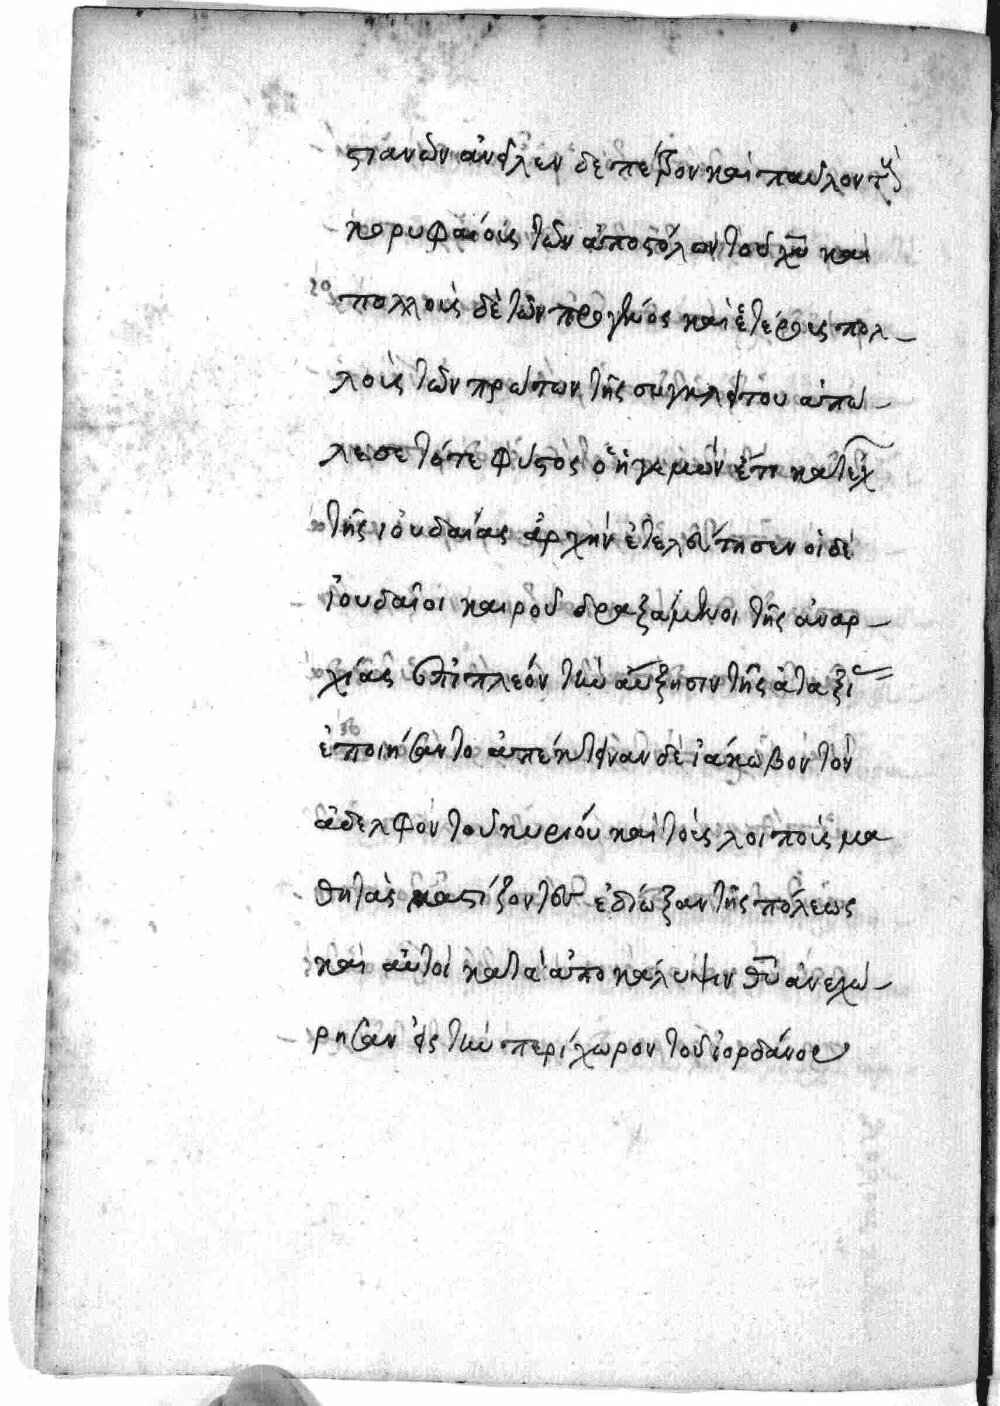 στιανῶν ἀνεῖλεν δὲ πέτρον καὶ παῦλον τοὺς
κορυφαίους τῶν ἀποστόλων τοῦ χῦ καὶ
πολλοὺς δὲ τῶν πρὸ γένους καὶ ἑτέρους πολ_
λοὺς τῶν πρώτων τῆς συγκλήτου ἀπώ_
λεσε τότε φύστος ὁ ἡγεμὼν ἔτι κατέχων
τῆς ἰουδαίας ἀρχὴν ἐτελεύτησεν οἱ δὲ
ἰουδαῖοι καιροῦ δραξάμενοι τῆς ἀναρ_
χίας ἐπιπλεόν τὴν αὔξησιν τῆς ἀταξί
ἐποιήσαντο ἀπέκτειναν δὲ ἰάκωβον τὸν
ἀδελφὸν τοῦ κυρίου καὶ τοὺς λοιποὺς μα
θητὰς μαστίζοντες ἐδίωξαν τῆς πόλεως
καὶ αὐτοὶ κατὰ ἀποκάλυψιν θῦ ἀνεχώ_
ρησαν εἰς τὴν περίχωρον τοῦ ἰορδάνου